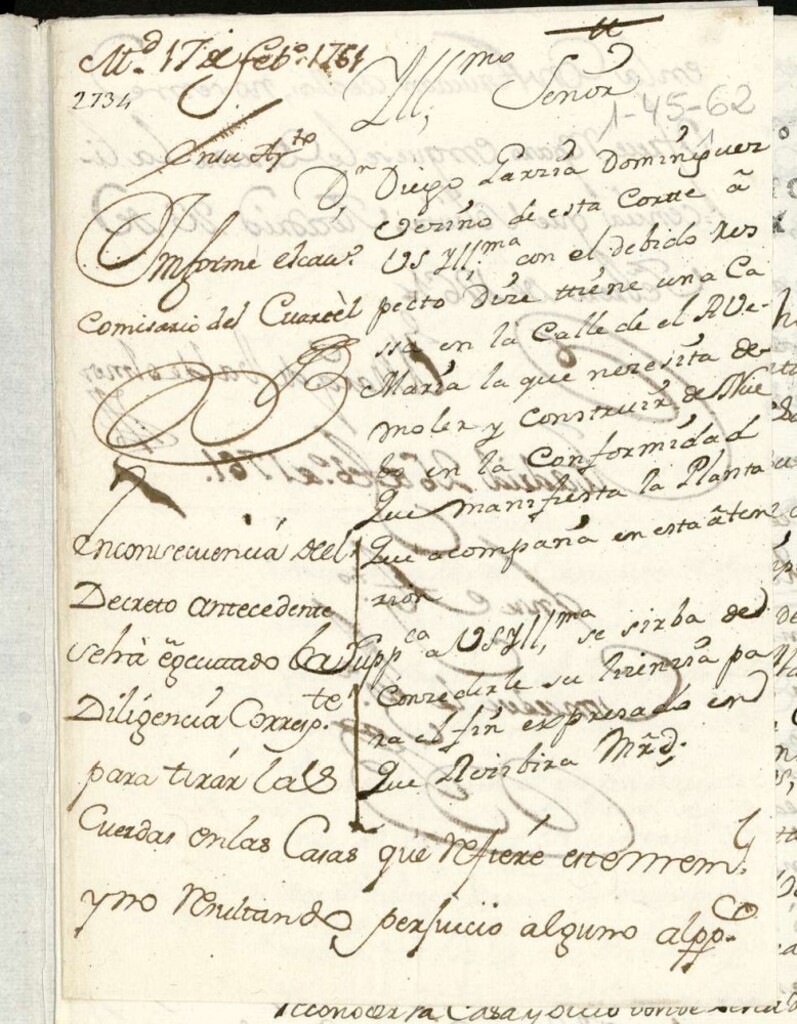 Md. 17 de Febo. 1761
2734
Yllmo Señor
1-45-62
En su Ayto
Informe el cavo.
Comisario del Cuartèl
Dn Diego Garzia Dominguez
vezino de esta Cortte â
VS Yllma con el debido Res
pecto Dize ttiene una Ca
ssa en la Calle de el Ave-
Maria la que nezesita de-
moler y construir de Nue
bo en la Conformidad
Que manifiesta la Planta
Que acompaña en esta atenz
zion
Suppca a VS Yllma, se sirba de
Conzederle su lizenzia pa
ra el fin expresado en
Que Rezibira Mrd.
En consecuencia del
Decreto antecedente
se há egecutado la
Diligencia Corresp.te
para tirár las
Cuerdas en las Casas que refiere este mem.l
y no resultando perjuicio alguno al ppco.
reconocer la Casa y sitio donde